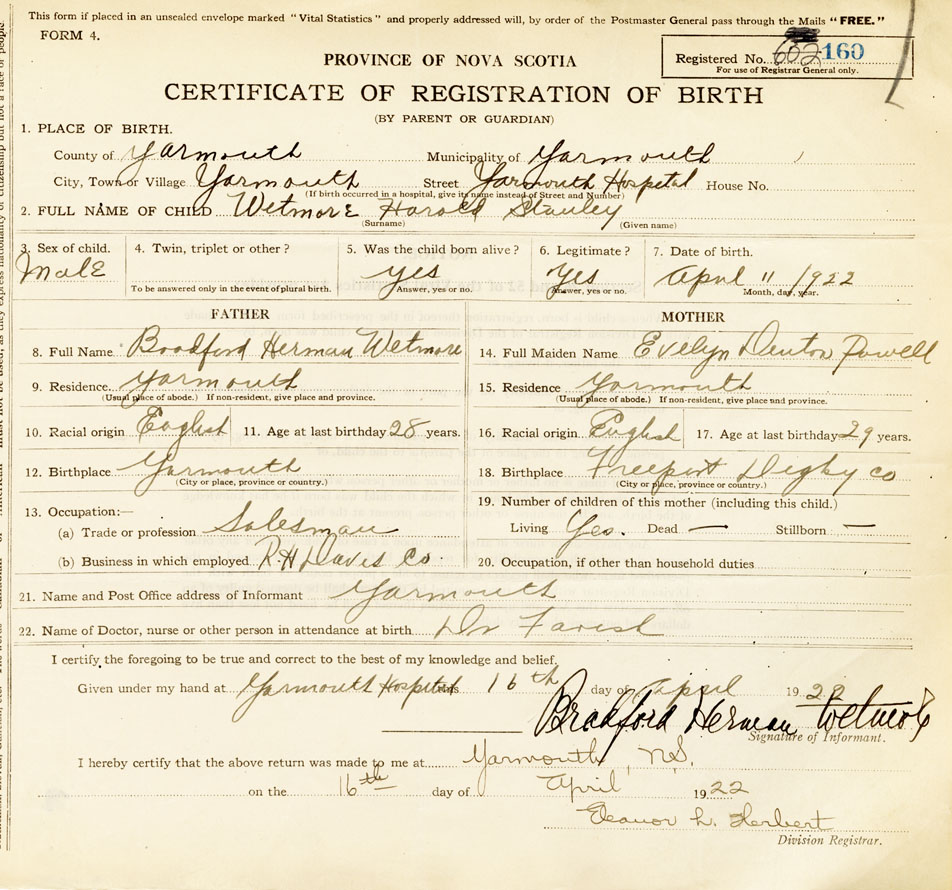 This form if placed in an unsealed envelope marked "Vital Statistics" and properly addressed will, by order of the Postmaster General pass through the Mails "FREE."
FORM 4.
Registered No. 602 160
For use of Registrar General only.
PROVINCE OF NOVA SCOTIA
CERTIFICATE OF REGISTRATION OF BIRTH
(BY PARENT OR GUARDIAN)
1. PLACE OF BIRTH.
County of Yarmouth Municipality of Yarmouth
City, Town or Village Yarmouth Street Yarmouth Hospital House No.
(If birth occurred in a hospital, give its name instead of Street and Number)
2. FULL NAME OF CHILD Wetmore Harold Stanley
(Surname) (Given name)
3. Sex of child. 4. Twin, triplet or other? 5. Was the child born alive? 6. Legitimate? 7. Date of birth.
Male yes Yes April 11 1922
To be answered only in the event of plural birth. Answer, yes or no. Answer, yes or no. Month, day, year.
FATHER MOTHER
8. Full Name Bradford Herman Wetmore 14. Full Maiden Name Evelyn Denton Powell
9. Residence Yarmouth 15. Residence Yarmouth
(Usual place of abode.) If non-resident, give place and province. (Usual place of abode.) If non-resident, give place and province.
10. Racial origin English 11. Age at last birthday 28 years. 16. Racial origin English 17. Age at last birthday 29 years.
12. Birthplace Yarmouth 18. Birthplace Freeport Digby co
(City or place, province or country.) (City or place, province or country.)
13. Occupation:— 19. Number of children of this mother (including this child.)
(a) Trade or profession Salesman Living Yes. Dead — Stillborn —
(b) Business in which employed R.H Davis Co 20. Occupation, if other than household duties
21. Name and Post Office address of Informant Yarmouth
22. Name of Doctor, nurse or other person in attendance at birth Dr Farish
I certify the foregoing to be true and correct to the best of my knowledge and belief.
Given under my hand at Yarmouth Hospital this 16th day of April 1922
Bradford Herman Wetmore
Signature of Informant.
I hereby certify that the above return was made to me at Yarmouth, N.S.
on the 16th day of April 1922
Eleanor L. Herbert
Division Registrar.